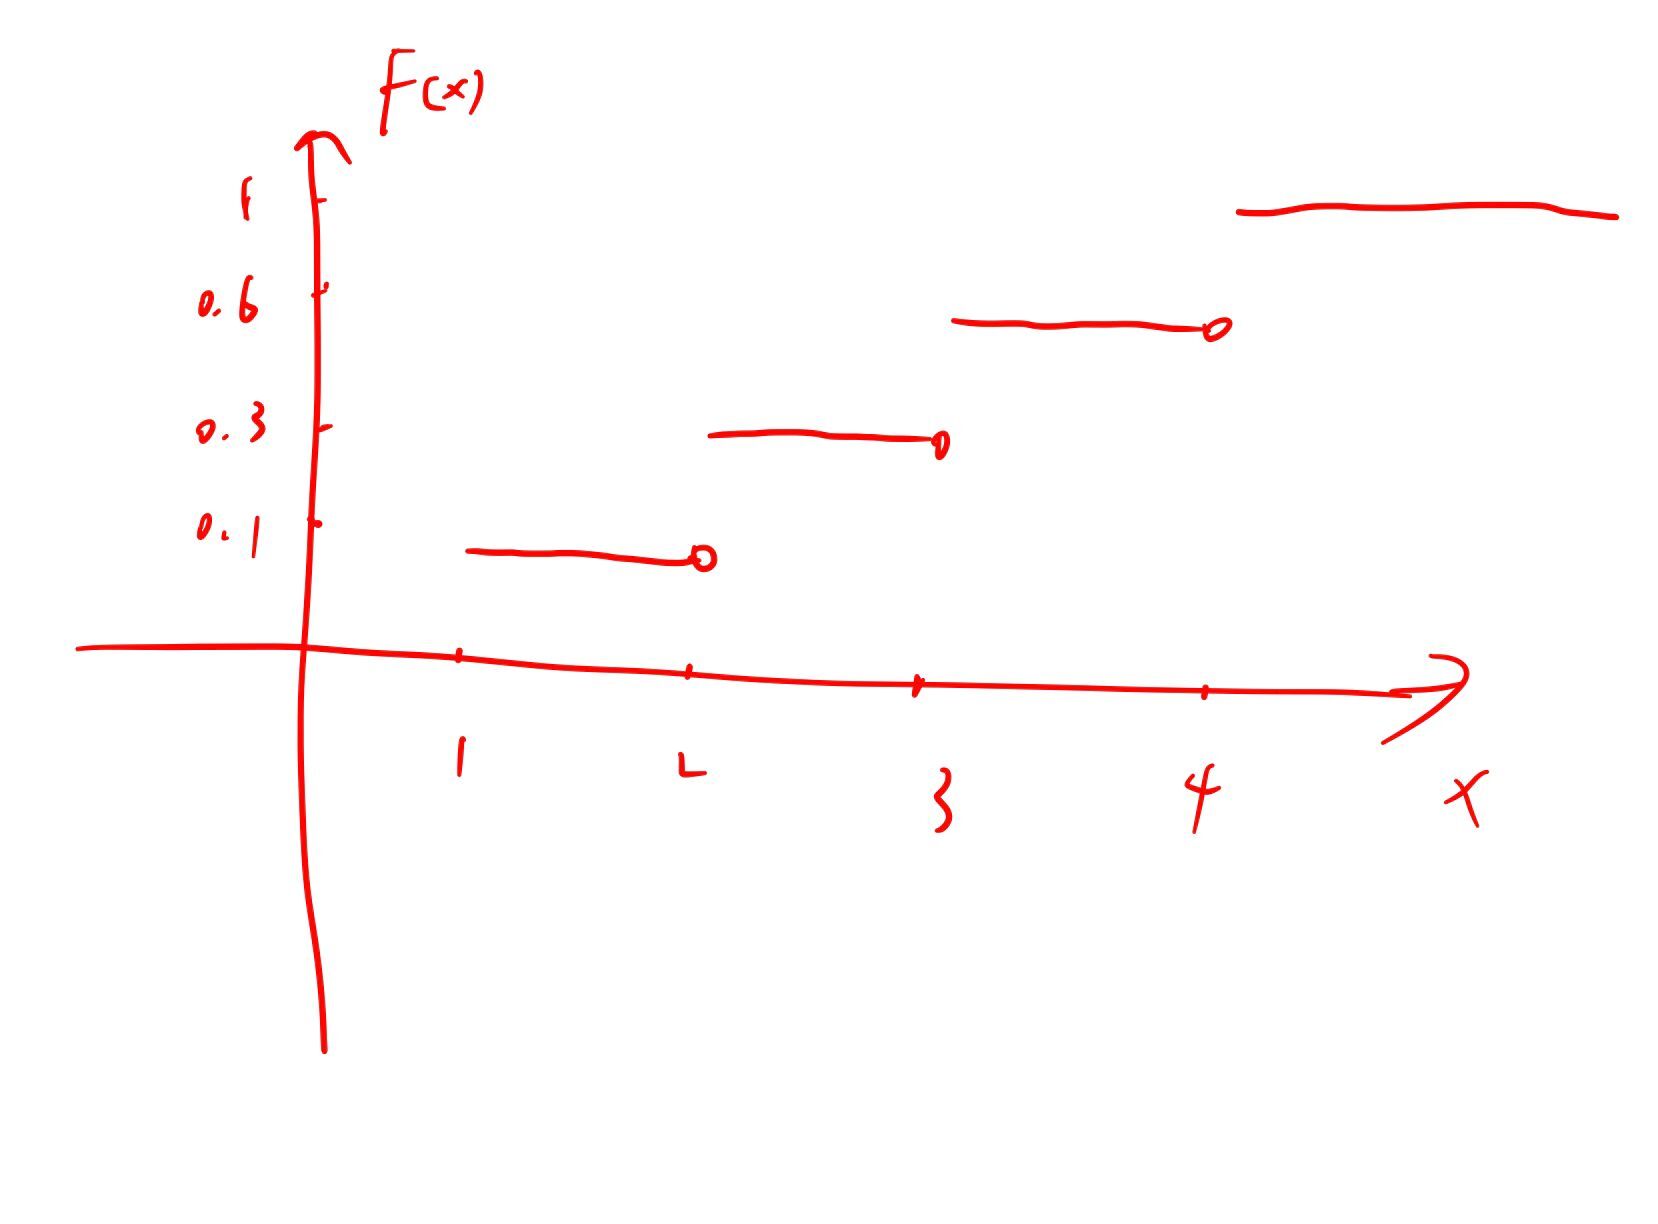 F(x)
1
0.6
0.3
0.1
1 2 3 4 x